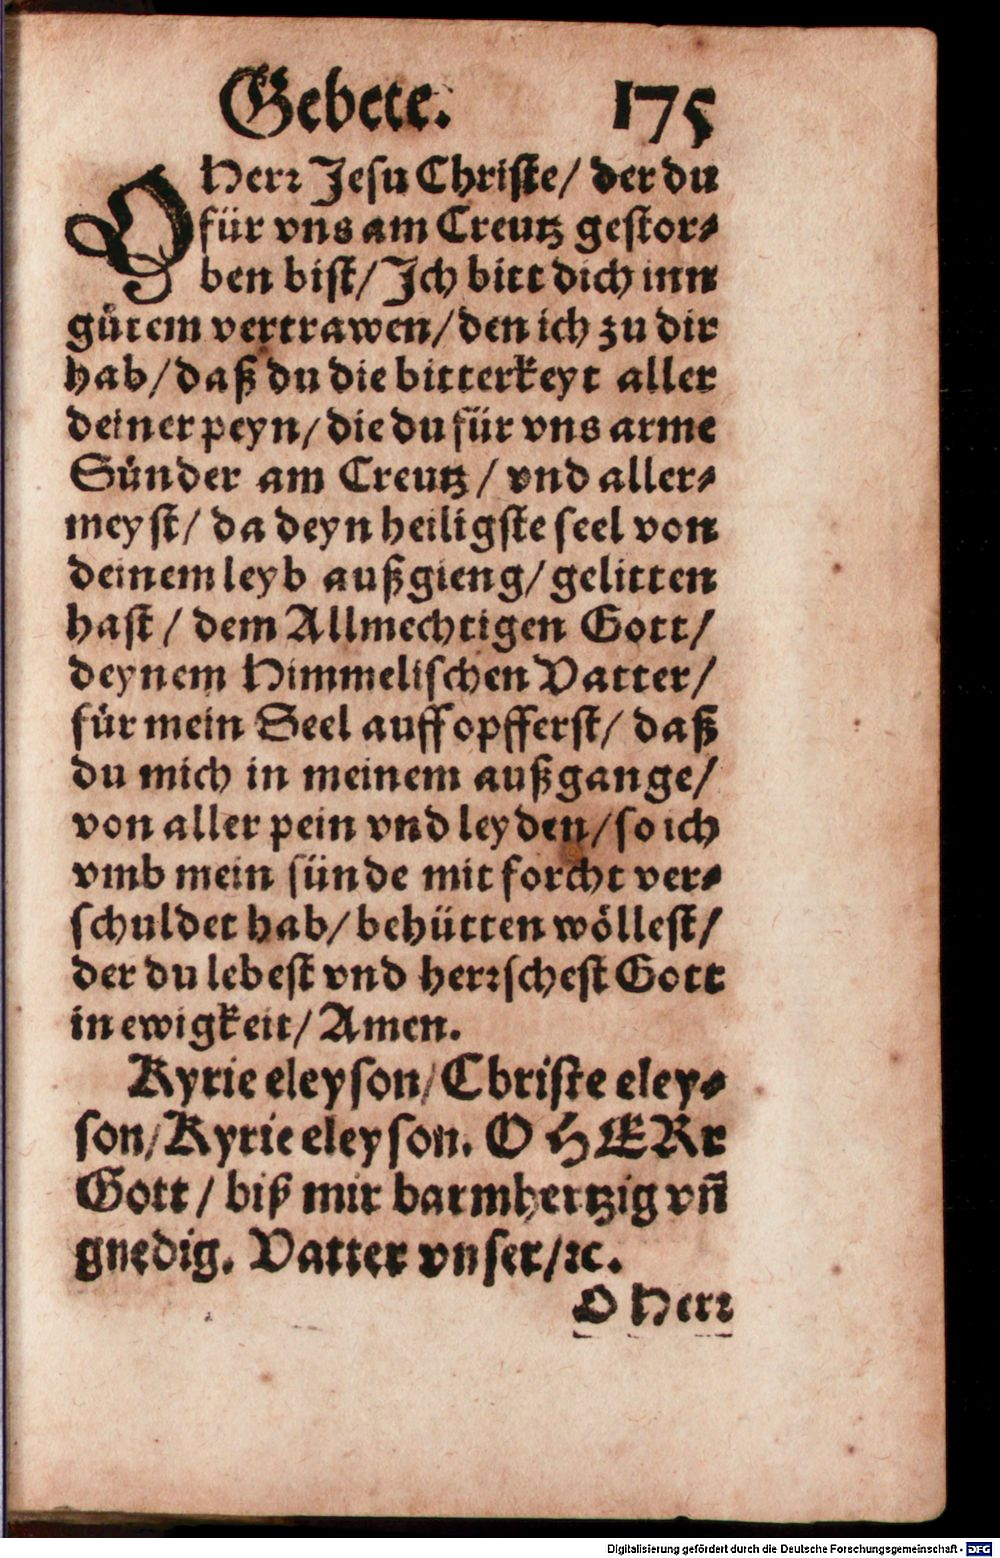 Gebete. 175
O Herr Jesu Christe/ der du
für vns am Creutz gestor⸗
ben bist/ Ich bitt dich inn
gůtem vertrawen/ den ich zu dir
hab/ daß du die bitterkeyt aller
deiner peyn/ die du für vns arme
Sünder am Creutz/ vnd aller⸗
meyst/ da deyn heiligste seel von
deinem leyb außgieng/ gelitten
hast/ dem Allmechtigen Gott/
deynem Himmelischen Vatter/
für mein Seel auffopfferst/ daß
du mich in meinem außgange/
von aller pein vnd leyden/ so ich
vmb mein sünde mit forcht ver⸗
schuldet hab/ behütten wöllest/
der du lebest vnd herrschest Gott
in ewigkeit/ Amen.
Kyrie eleyson/ Christe eley⸗
son/ Kyrie eleyson. O HERr
Gott/ biß mir barmhertzig vñ
gnędig. Vatter vnser/ꝛc.
O Herr
Digitalisierung gefördert durch die Deutsche Forschungsgemeinschaft - DFG